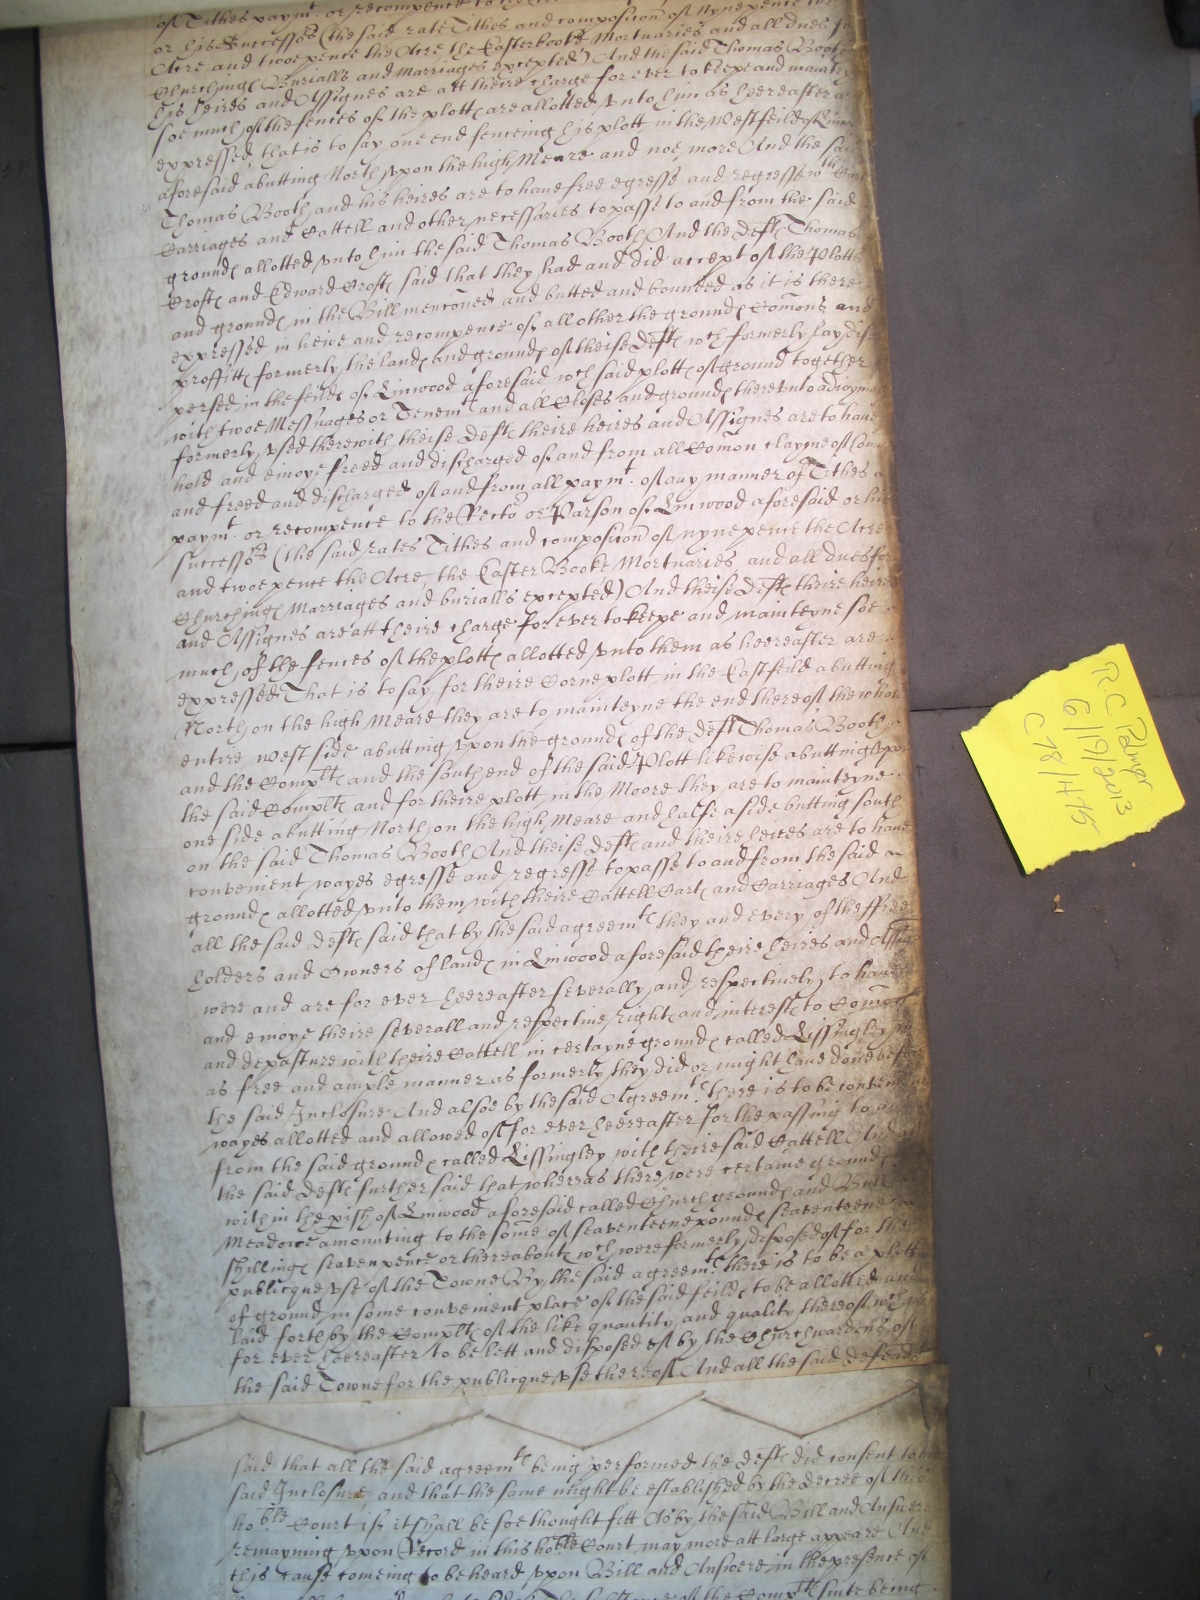 of Tithes paymt. or recompence to
or his Successors (the said rate Tithes and composicon of Nynepence the
Acre and twoe pence the Acre the Easterbooke Mortuaries and all dues for
Churching Burialls and Marriages excepted) And the said Thomas Booth
his heires and Assignes are att theire charge for ever to keepe and mainteyne
soe much of the fences of the plotte are allotted vnto him as hereafter
expressed, that is to say one end fenceing his plott in the Westfeild of Linwood
aforesaid abutting North vpon the high Meare and noe more And the said
Thomas Booth and his heires are to haue free egresse and regresse wth
Carriages and Cattell and other necessaries to passe to and from the said
grounde allotted vnto him the said Thomas Booth And the Defte Thomas
and Edward said that they had and did accept of the Plotte
and grounde in the Bill mencioned and butted and bounded as it is there
expressed in leiue and recompence of all other the grounde Comons and
proffitte formerly the lande and grounde of theise Defte wch formerly lay dis
persed in the feilde of Linwood aforesaid wch said plotte of ground together
with twoe Messuages or Tenemte and all Closes and grounde therevnto adioyning
formerly vsed therewith theise Defte theire heires and Assignes are to haue
hold and enioye freed and discharged of and from all Comon clayme of Comon
and freed and discharged of and from all paymt. of any manner of Tithes
paymt. or recompence to the Rector or Parson of Linwood aforesaid or his
successors (the said rates Tithes and composicon of nynepence the Acre
and twoe pence the Acre, the Easter Booke Mortuaries and all dues for
Churchinge Marriages and burialls excepted) And theise Defte theire heires
and Assignes are att theire charge for ever to keepe and mainteyne soe
much of the fences of the plotte allotted vnto them as heereafter are
expressed That is to say for theire Corne plott in the Eastfeild abutting
North on the high Meare they are to mainteyne the end thereof the whole
entire west side abutting vpon the grounde of the Deft Thomas Booth
and the Complte and the south end of the said Plott likewise abutting vpon
the said Complte and for theire plott in the Moore they are to mainteyne
one side abutting North on the high Meare and halfe a side butting south
on the said Thomas Booth And theise Defte and theire heires are to haue
convenient wayes egresse and regresse to passe to and from the said
grounde allotted vnto them with theire Cattell Carte and Carriages And
all the said Defte said that by the said agreemte they and every of the ffree
holders and Owners of lande in Linwood aforesaid theire heires and Assignes
were and are for ever heereafter severally and respectively to haue
and enioye theire severall and respective righte and intereste to Comon
and depasture with theire Cattell in certayne grounde called Lissingley in
as free and ample manner as formerly they did or might haue done before
the said Inclosure And alsoe by the said Agreemte there is to be convenient
wayes allotted and allowed of for ever heereafter for the passing to and
from the said grounde called Lissingley with theire said Cattell And
the said Defte further said that whereas there were certaine grounde
within the pish of Linwood aforesaid called Church grounde and
Meadowe amounting to the some of seaventeene pounde seaventeene
shillinge seaven pence or thereaboute wch were formerly disposed of for the
publicque vse of the Towne By the said agreemte there is to be a plott
of ground in some convenient place of the said feilde to be allotted and
laid forth by the Complte of the like quantity and quality thereof wch
for ever heereafter to be lett and disposed of by the Churchwardens of
the said Towne for the publicque vse thereof And all the said Defendte
said that all the said agreemte being performed the Defte did consent to the
said Inclosure and that the same might be established by the Decree of this
hoble Court if it shall be soe thought fitt As by the said Bill and Answere
remayning vpon Record in this hoble Court may more att large appeare And
this cause comeing to be heard vpon Bill and Answere in the presence of
R C Palmer
6/19/2013
C78/475